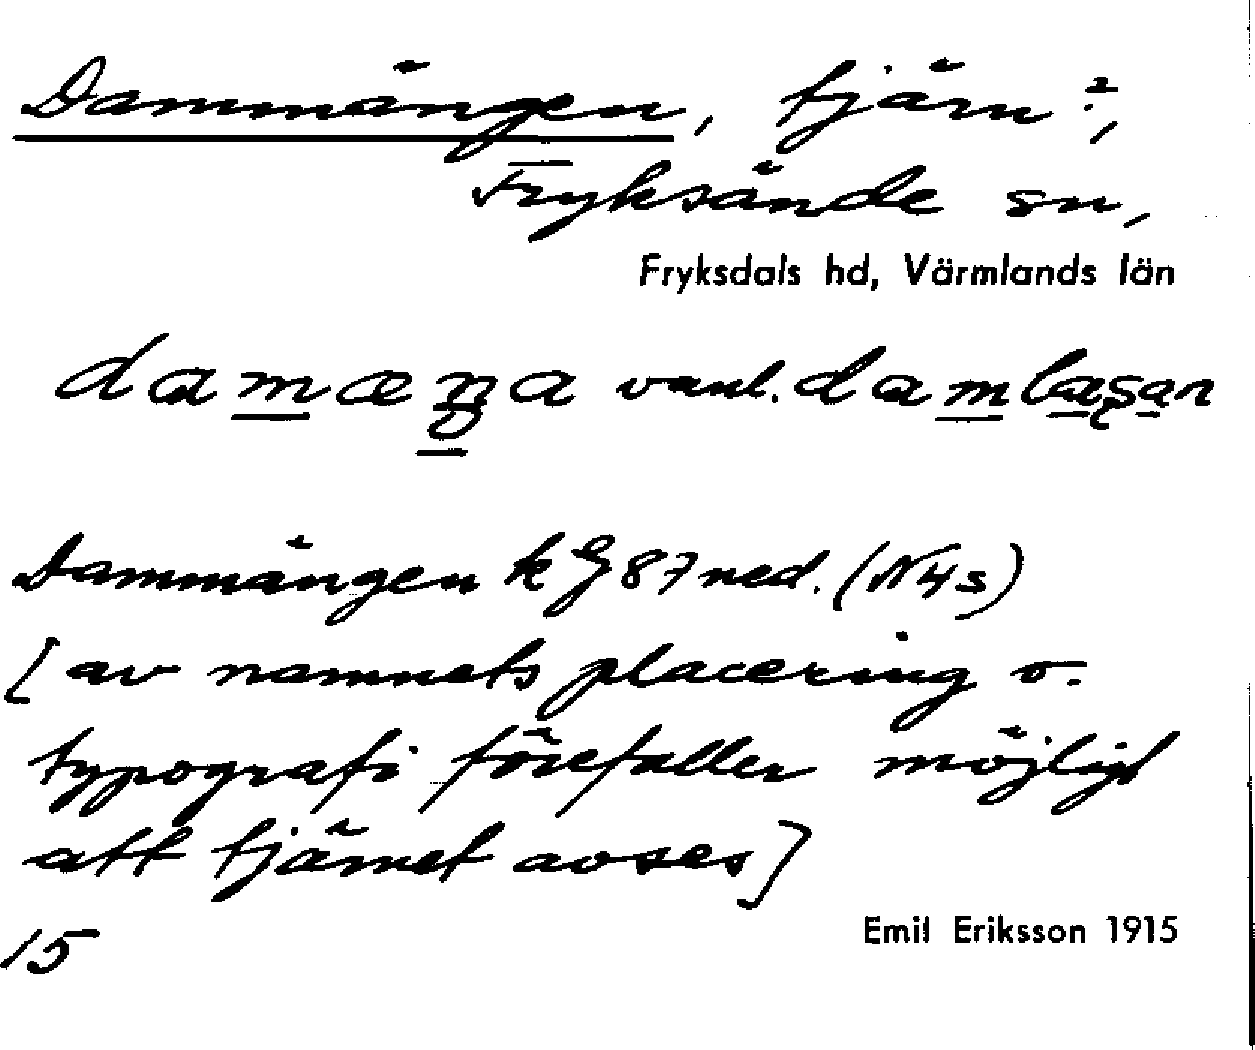 Dammängen, tjärn?,
Fryksände sn,
Fryksdals hd, Värmlands län
damæŋa vanl. damlaʂan
Dammängen k G 87 ned. (N4s)
[av namnets placering o.
typografi förefaller möjligt
att tjärnet avses]
15
Emil Eriksson 1915